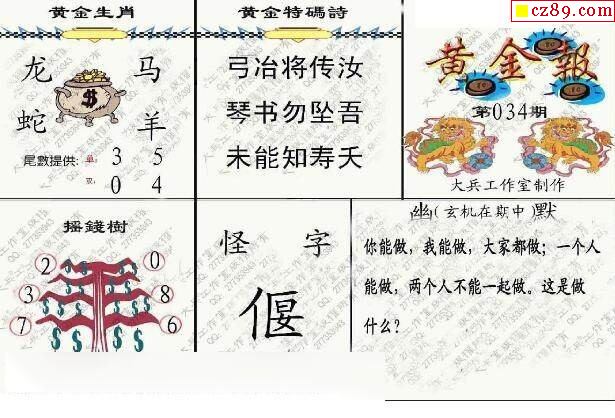 cz89.com
黄金生肖
龙 马
蛇 羊
尾數提供：单：3 5
双：0 4
黄金特碼詩
弓冶将传汝
琴书勿坠吾
未能知寿夭
黄金報
第034期
大兵工作室制作
摇錢樹
2 0
3 8
7 6
怪字
偃
幽(玄机在期中)默
你能做，我能做，大家都做；一个人
能做，两个人不能一起做。这是做
什么？